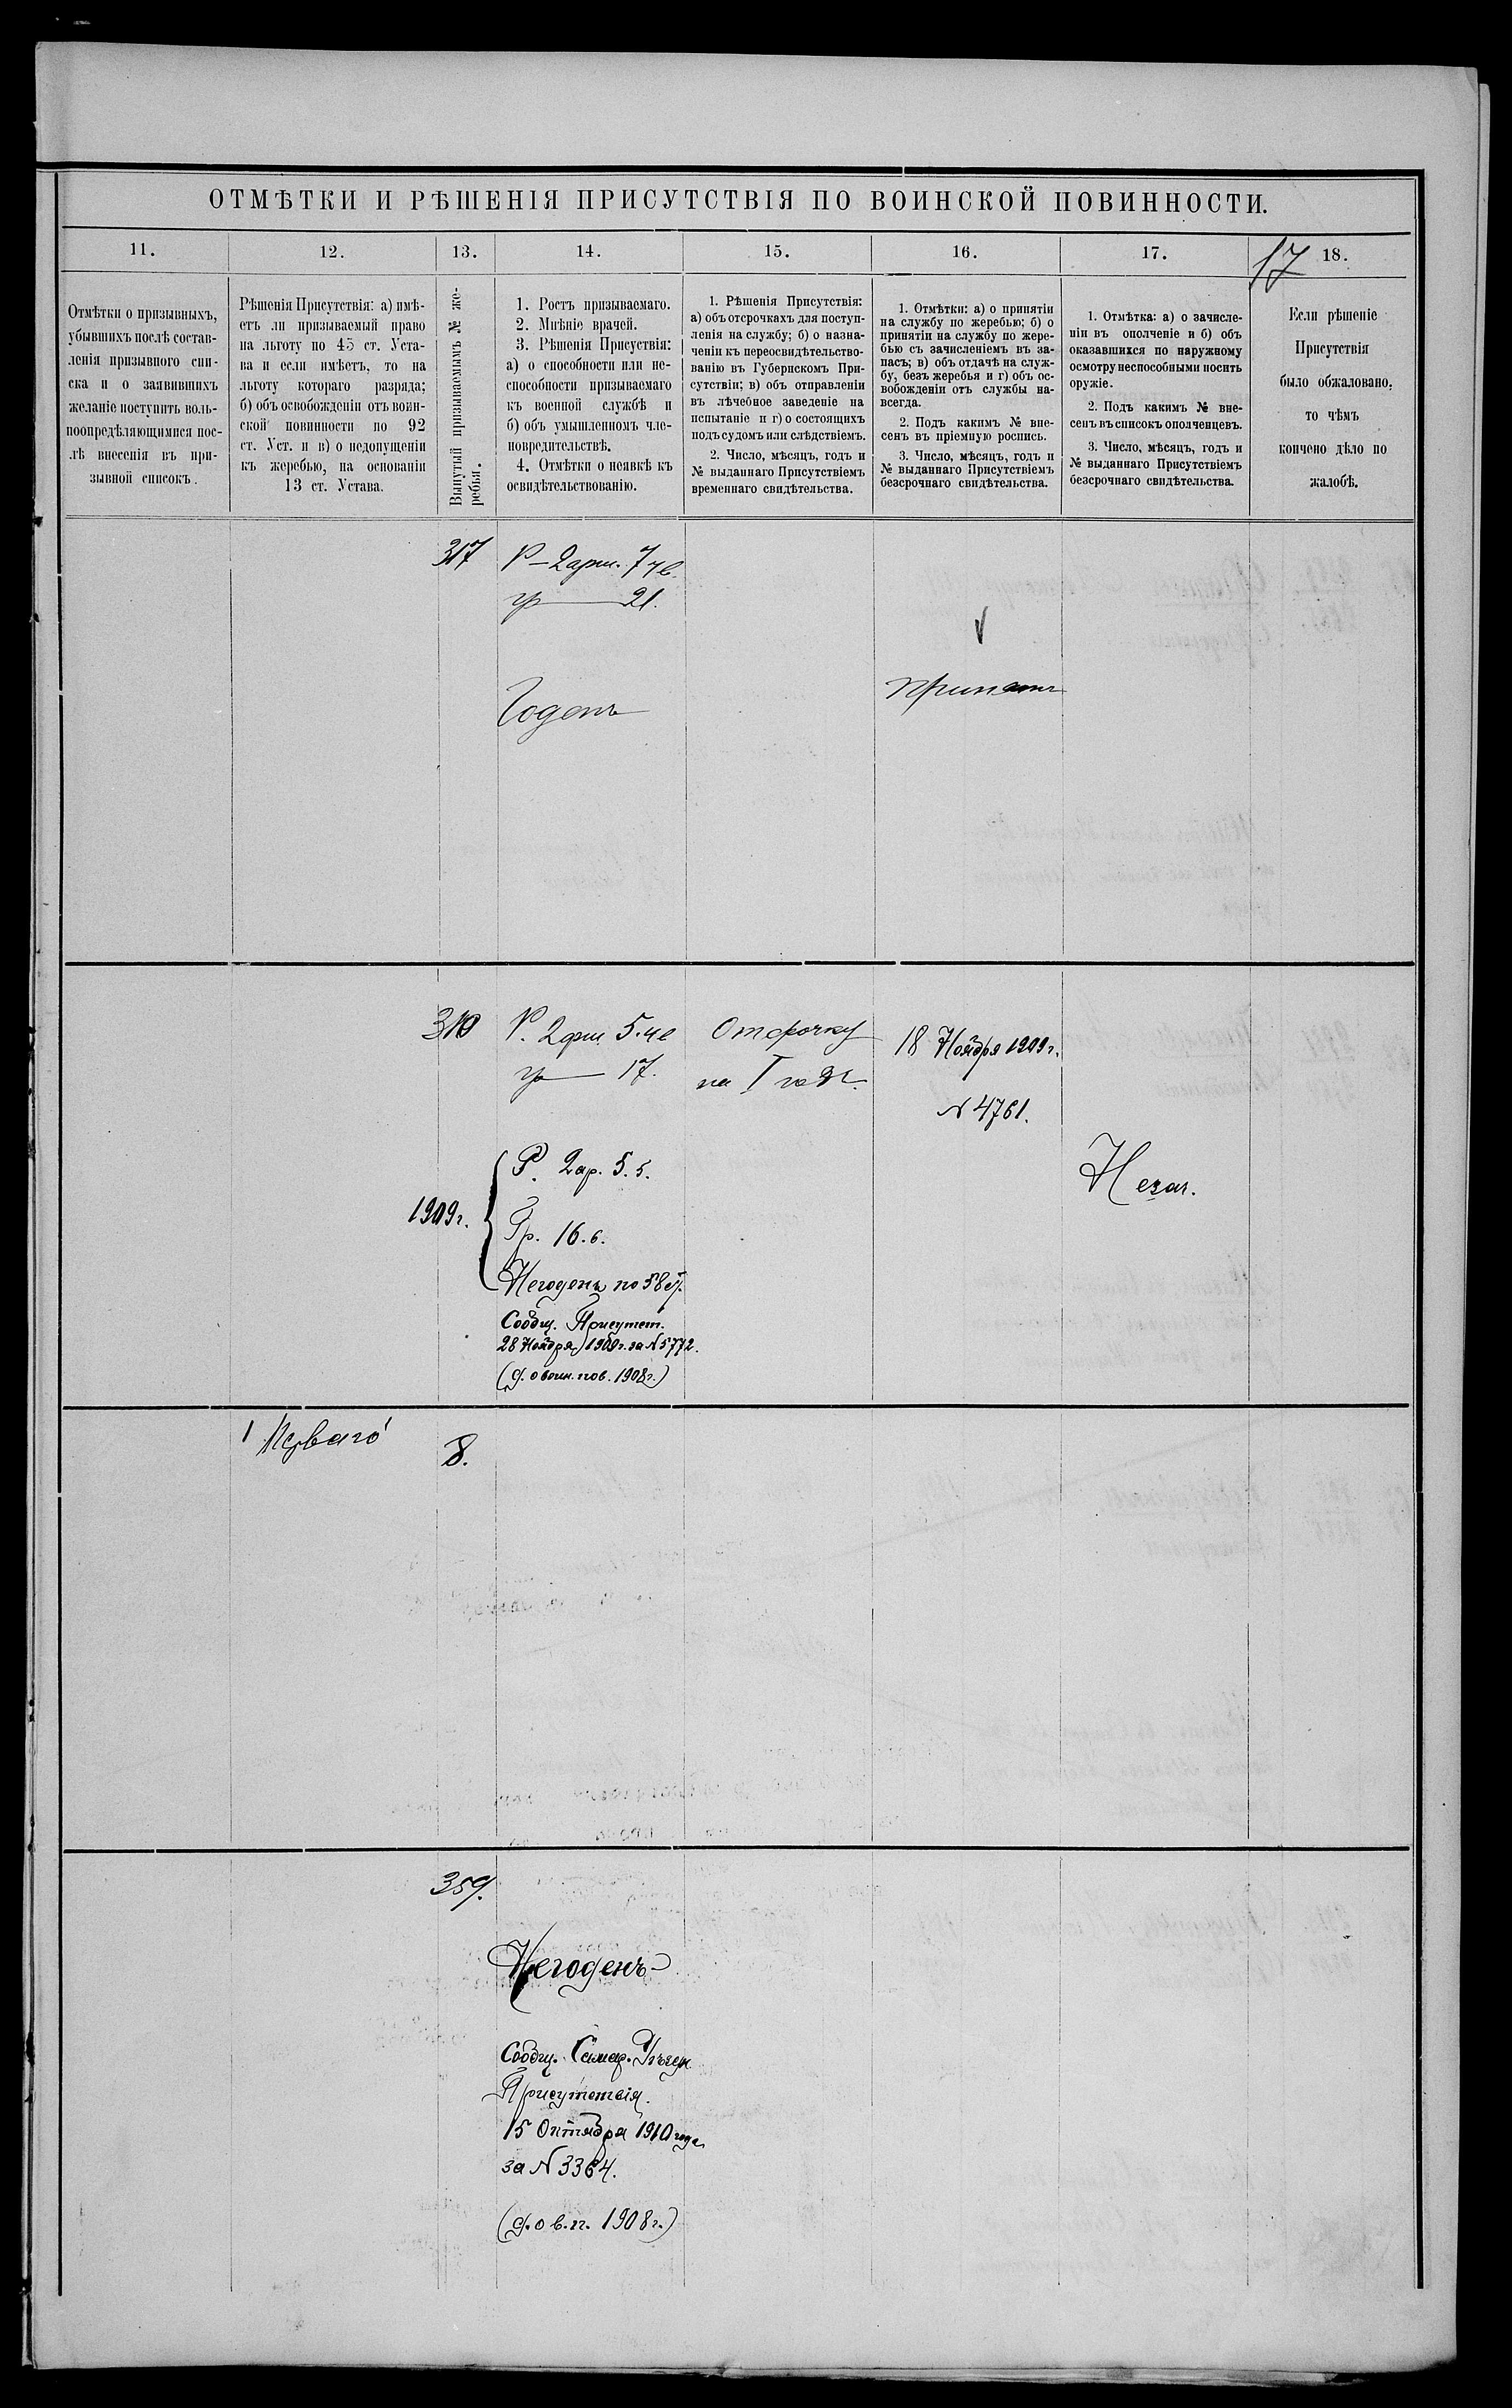 ОТМѢТКИ И РѢШЕНІЯ ПРИСУТСТВІЯ ПО ВОИНСКОЙ ПОВИННОСТИ.
11.
12.
13.
14.
15.
16.
17.
17
18.
Отмѣтки о призывныхъ,
убывшихъ послѣ состав-
ленія призывного спи-
ска и о заявившихъ
желаніе поступить воль-
ноопредѣляющимися пос-
лѣ внесенія въ при-
зывной списокъ.
Рѣшенія Присутствія: а) имѣ-
етъ ли призываемый право
на льготу по 45 ст. Уста-
ва и если имѣетъ, то на
льготу котораго разряда;
б) объ освобожденіи отъ воин-
ской повинности по 92
ст. Уст. и в) о недопущеніи
къ жеребью, на основаніи
13 ст. Устава.
Вынутый призываемымъ № же-
ребья.
1. Ростъ призываемаго.
2. Мнѣніе врачей.
3. Рѣшенія Присуствія:
а) о способности или не-
способности призываемаго
къ военной службѣ и
б) объ умышленномъ чле-
новредительствѣ.
4. Отмѣтки о неявкѣ къ
освидѣтельствованію.
1. Рѣшенія Присутствія:
а) объ отсрочкахъ для поступ-
ленія на службу; б) о назна-
ченіи къ переосвидѣтельство-
ванію въ Губернскомъ При-
сутствіи; в) объ отправленіи
въ лѣчебное заведеніе на
испытаніе и г) о состоящихъ
подъ судомъ или слѣдствіемъ.
2. Число, мѣсяцъ, годъ и
№ выданнаго Присутствіемъ
временнаго свидѣтельства.
1. Отмѣтки: а) о принятіи
на службу по жеребью; б) о
принятіи на службу по жере-
бью съ зачисленіемъ въ за-
пасъ; в) объ отдачѣ на служ-
бу, безъ жеребья и г) объ ос-
вобожденіи отъ службы на-
всегда.
2. Подъ какимъ № вне-
сенъ въ пріемную роспись.
3. Число, мѣсяцъ, годъ и
№ выданнаго Присутствіемъ
безсрочнаго свидѣтельства.
1. Отмѣтка: а) о зачисле-
ніи въ ополченіе и б) объ
оказавшихся по наружному
осмотру неспособными носить
оружіе.
2. Подъ какимъ № вне-
сенъ въ списокъ ополченцевъ.
3. Число, мѣсяцъ, годъ и
№ выданнаго Присутствіемъ
безсрочнаго свидѣтельства.
Если рѣшеніе
Присутствія
было обжаловано,
то чѣмъ
кончено дѣло по
жалобѣ.
317
Р – 2 арш. 7 чв.
гр — 21.
Годенъ
Принятъ
310
Р. 2 арш. 5. чв
гр — 17.
Отсрочку
на I годъ.
18 Ноября 1909 г.
N 4761.
1909 г.
Р. 2 ар. 5. 5.
Гр. 16. 6.
Негоденъ по 58 ст.
Сообщ. Присутст.
28 Ноября 1909 г. за N 5772.
(д. о воин. пов. 1908 г.)
Незач.
1 Перваго
8.
359.
Негоденъ
Сообщ. Самар. Уѣздн.
Присутствія.
15 Октября 1910 года
за N 3364.
(д. о в. п. 1908 г.)